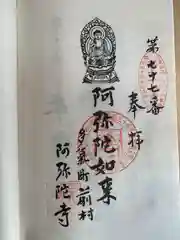 第七十七番
奉拝
阿弥陀如来
多気町前村
阿弥陀寺